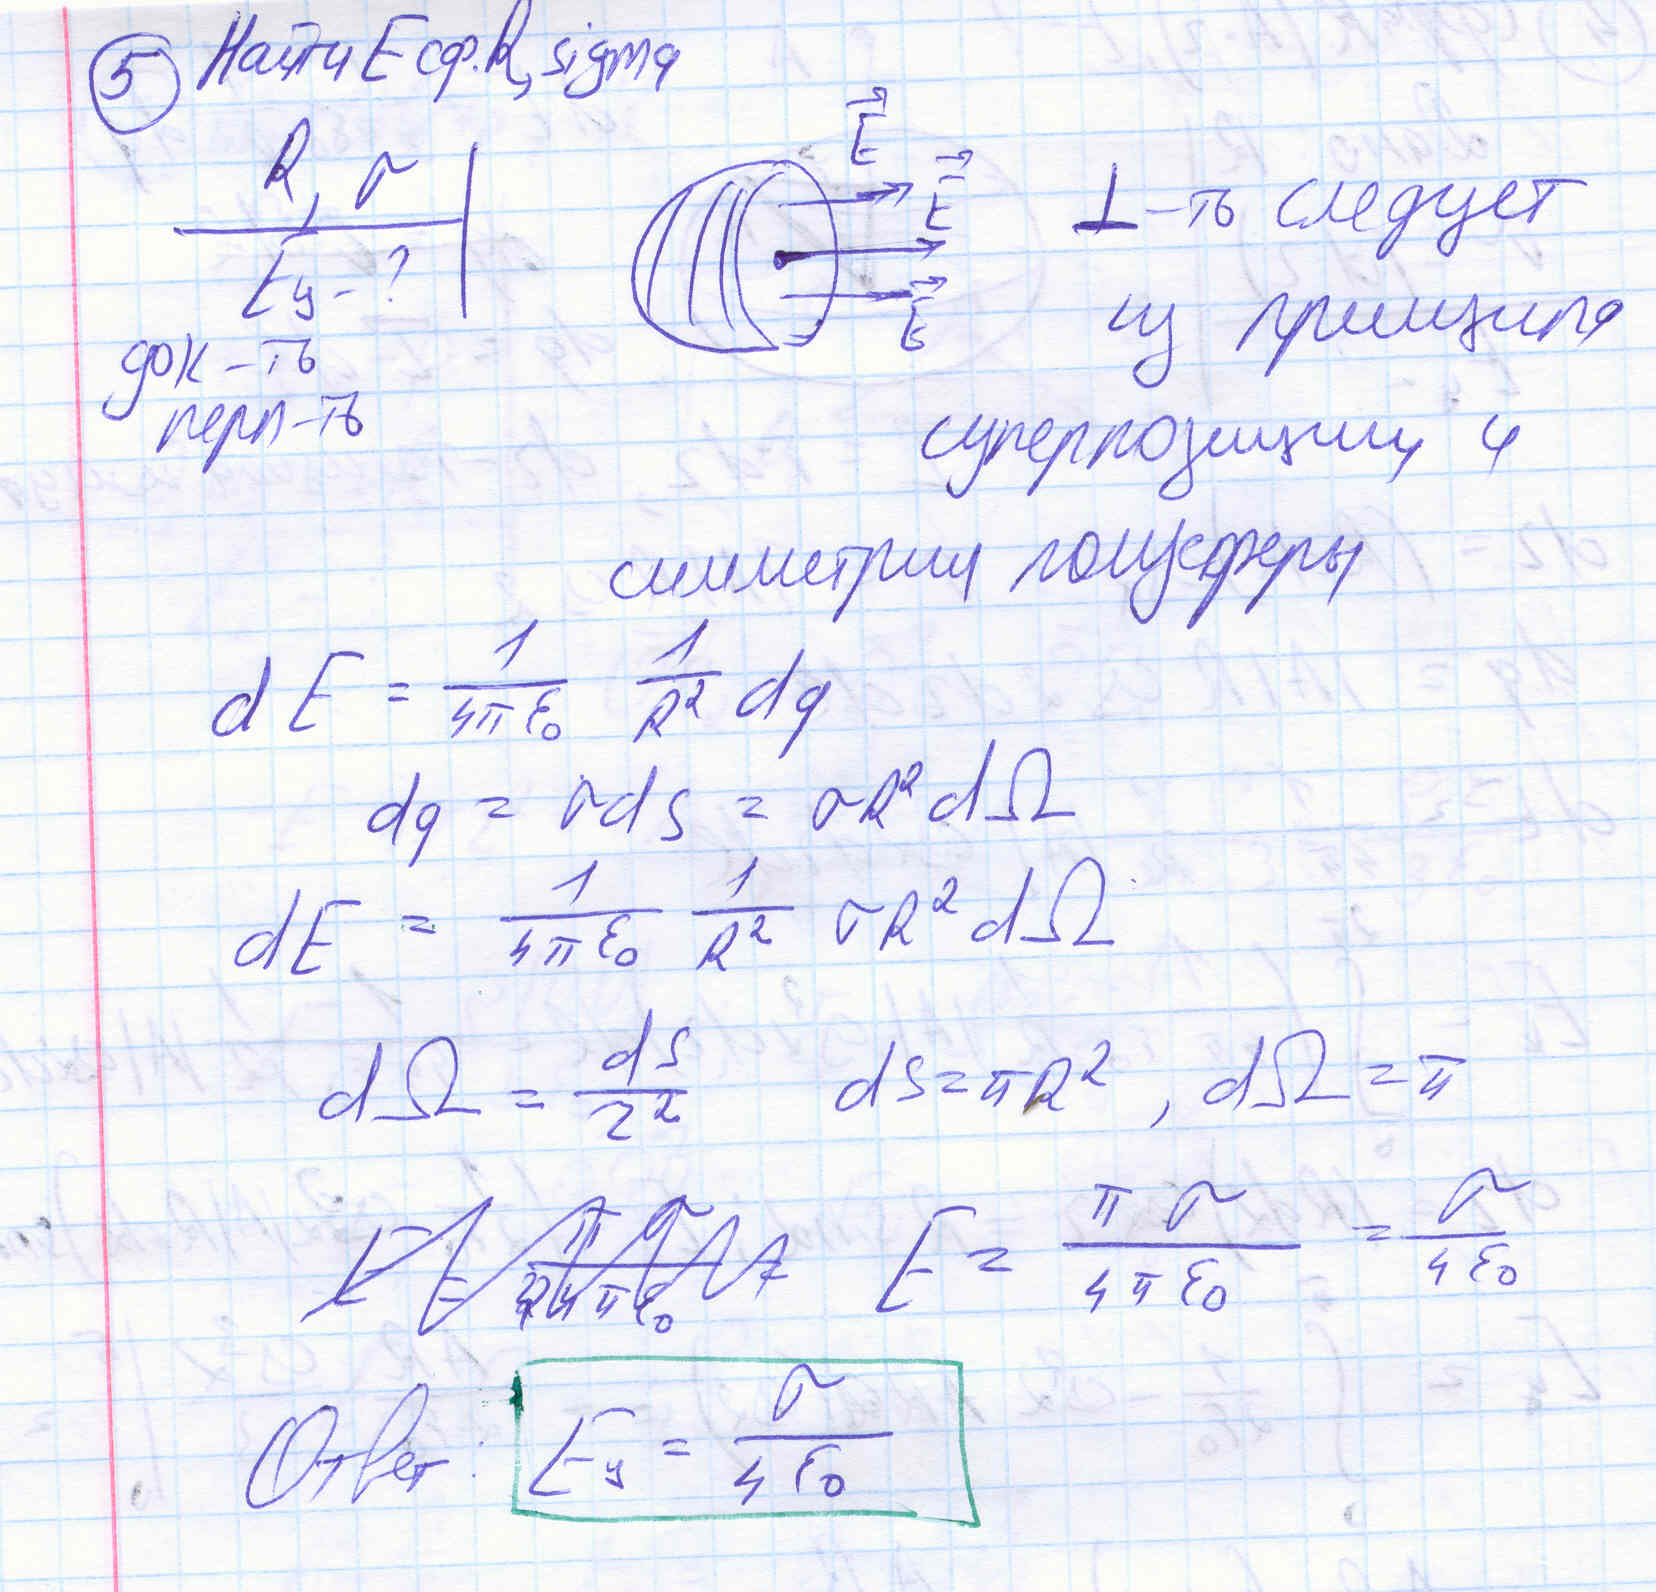 5 Найти E сф. R, sigma
R, σ
Eу - ?
док-ть
перп-ть
E⃗
E⃗
E⃗
⊥-ть следует
из принципа
суперпозиции и
симметрии полусферы
dE = 1/(4πε₀) 1/R² dq
dq = σds = σR² dΩ
dE = 1/(4πε₀) 1/R² σR² dΩ
dΩ = ds/r² ds = πR², dΩ = π
E = πσ/(4πε₀) = σ/(4ε₀)
Ответ: Eу = σ/(4ε₀)